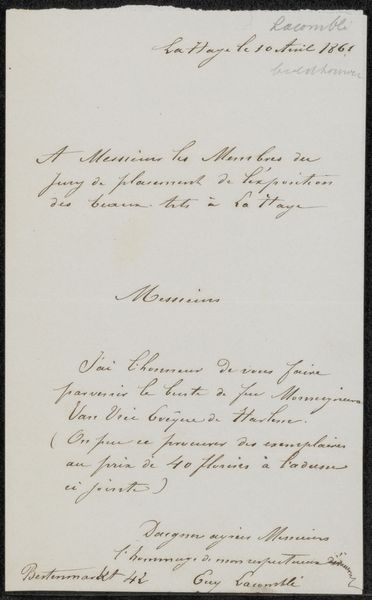 Lacomblé
beeldhouwer
La Haye le 10 Avril 1861
A Messieurs les Membres du
Jury de placement de l'exposition
des beaux-Arts à La Haye
Messieurs
J'ai l'honneur de vous faire
parvenir le buste de feu Monseigneur
Van Vree Evêque de Harlem.
(On peu ce procurer des exemplaires
au prix de 40 florins à l'adresse
ci jointe)
Daignez agréer Messieurs
l'hommage de mon respectueux
Bestenmarkt 42 Guy Lacomblé